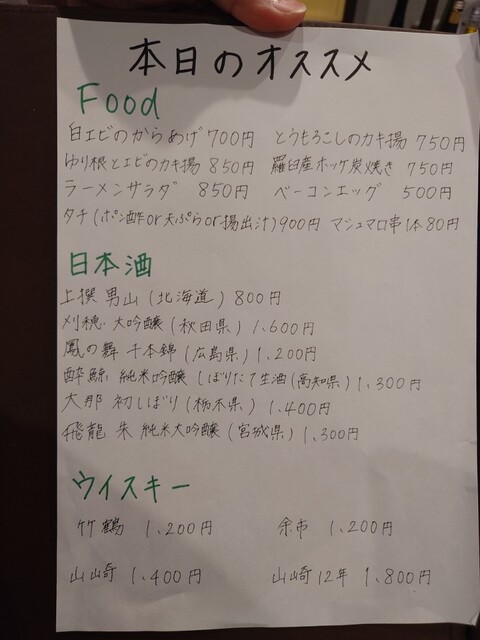 本日のオススメ
Food
白エビのからあげ 700円 とうもろこしのカキ揚 750円
ゆり根とエビのカキ揚 850円 羅臼産ホッケ炭焼き 750円
ラーメンサラダ 850円 ベーコンエッグ 500円
タチ(ポン酢or天ぷらor揚出汁)900円 マシュマロ串1本80円
日本酒
上撰 男山(北海道)800円
刈穂 大吟醸(秋田県)1,600円
鳳の舞 千本錦(広島県)1,200円
酔鯨 純米吟醸 しぼりたて生酒(高知県)1,300円
大那 初しぼり(栃木県)1,400円
飛龍 朱 純米大吟醸(宮城県)1,300円
ウイスキー
竹鶴 1,200円 余市 1,200円
山崎 1,400円 山崎12年 1,800円